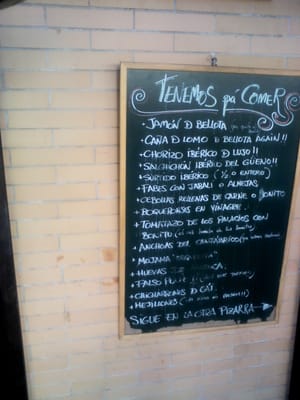 TENEMOS pá COMER
• JAMÓN D BELLOTA
• CAÑA D LOMO D BELLOTA AGAIN!!
• CHORIZO IBÉRICO D LUJO!!
• SALCHICHÓN IBÉRICO DEL GÜENO!!
• SURTIDO IBÉRICO (½ o ENTERO)
• FABES CON JABALÍ O ALMEJAS
• CEBOLLAS RELLENAS DE CARNE O BONITO
• BOQUERONES EN VINAGRE
• TOMATAZO DE LOS PALACIOS CON
BONITO
• ANCHOAS DEL CANTÁBRICO
• MOJAMA
• HUEVAS
• FALSO
• CHICHARRONES D CAI
• MEJILLONES
SIGUE EN LA OTRA PIZARRA